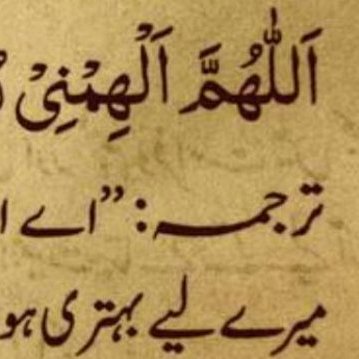 اَللّٰهُمَّ اَلْهِمْنِیْ
ترجمہ: ”اے
میرے لیے بہتری ہو